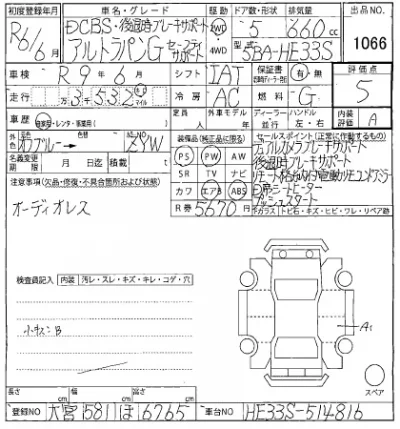 初度登録年月 車名・グレード 駆動 ドア数・形状 排気量 出品NO.
R6/6月 DCBS・後退時ブレーキサポート 2WD 5 660cc
アルトラパンG セーフティサポート 4WD 型式 5BA-HE33S 1066
車検 R9年6月 シフト IAT 保証書 有・無 評価点
走行 3千532 km マイル 冷房 AC 燃料 G 5
車歴 自家用・レンタ・事業用 定員 人 外車モデル 年 ディーラー 並行 ハンドル 左・右 内装評価 A
外色 オフブルー→ 色替 カラーNO ZYW 装備品(純正品に限る) セールスポイント(正常に作動するもの)
名義変更期限 月 日迄 積載 t PS PW AW
SR TV ナビ
カワ エアB ABS
R券 5670円
全カメラブレーキサポート
後退時ブレーキサポート
リモート格納付電動リモコンドアミラー
D席シートヒーター
プッシュスタート
ガラス トビ石・キズ・ヒビ・ワレ・リペア跡
注意事項(欠品・修復・不具合箇所および状態)
オーディオレス
検査員記入 内装 汚レ・スレ・キズ・キレ・コゲ・穴
小キズB
A1
スペア
長さ cm 幅 cm 高さ cm
登録NO 大宮581ほ6765 車台NO HE33S-514816